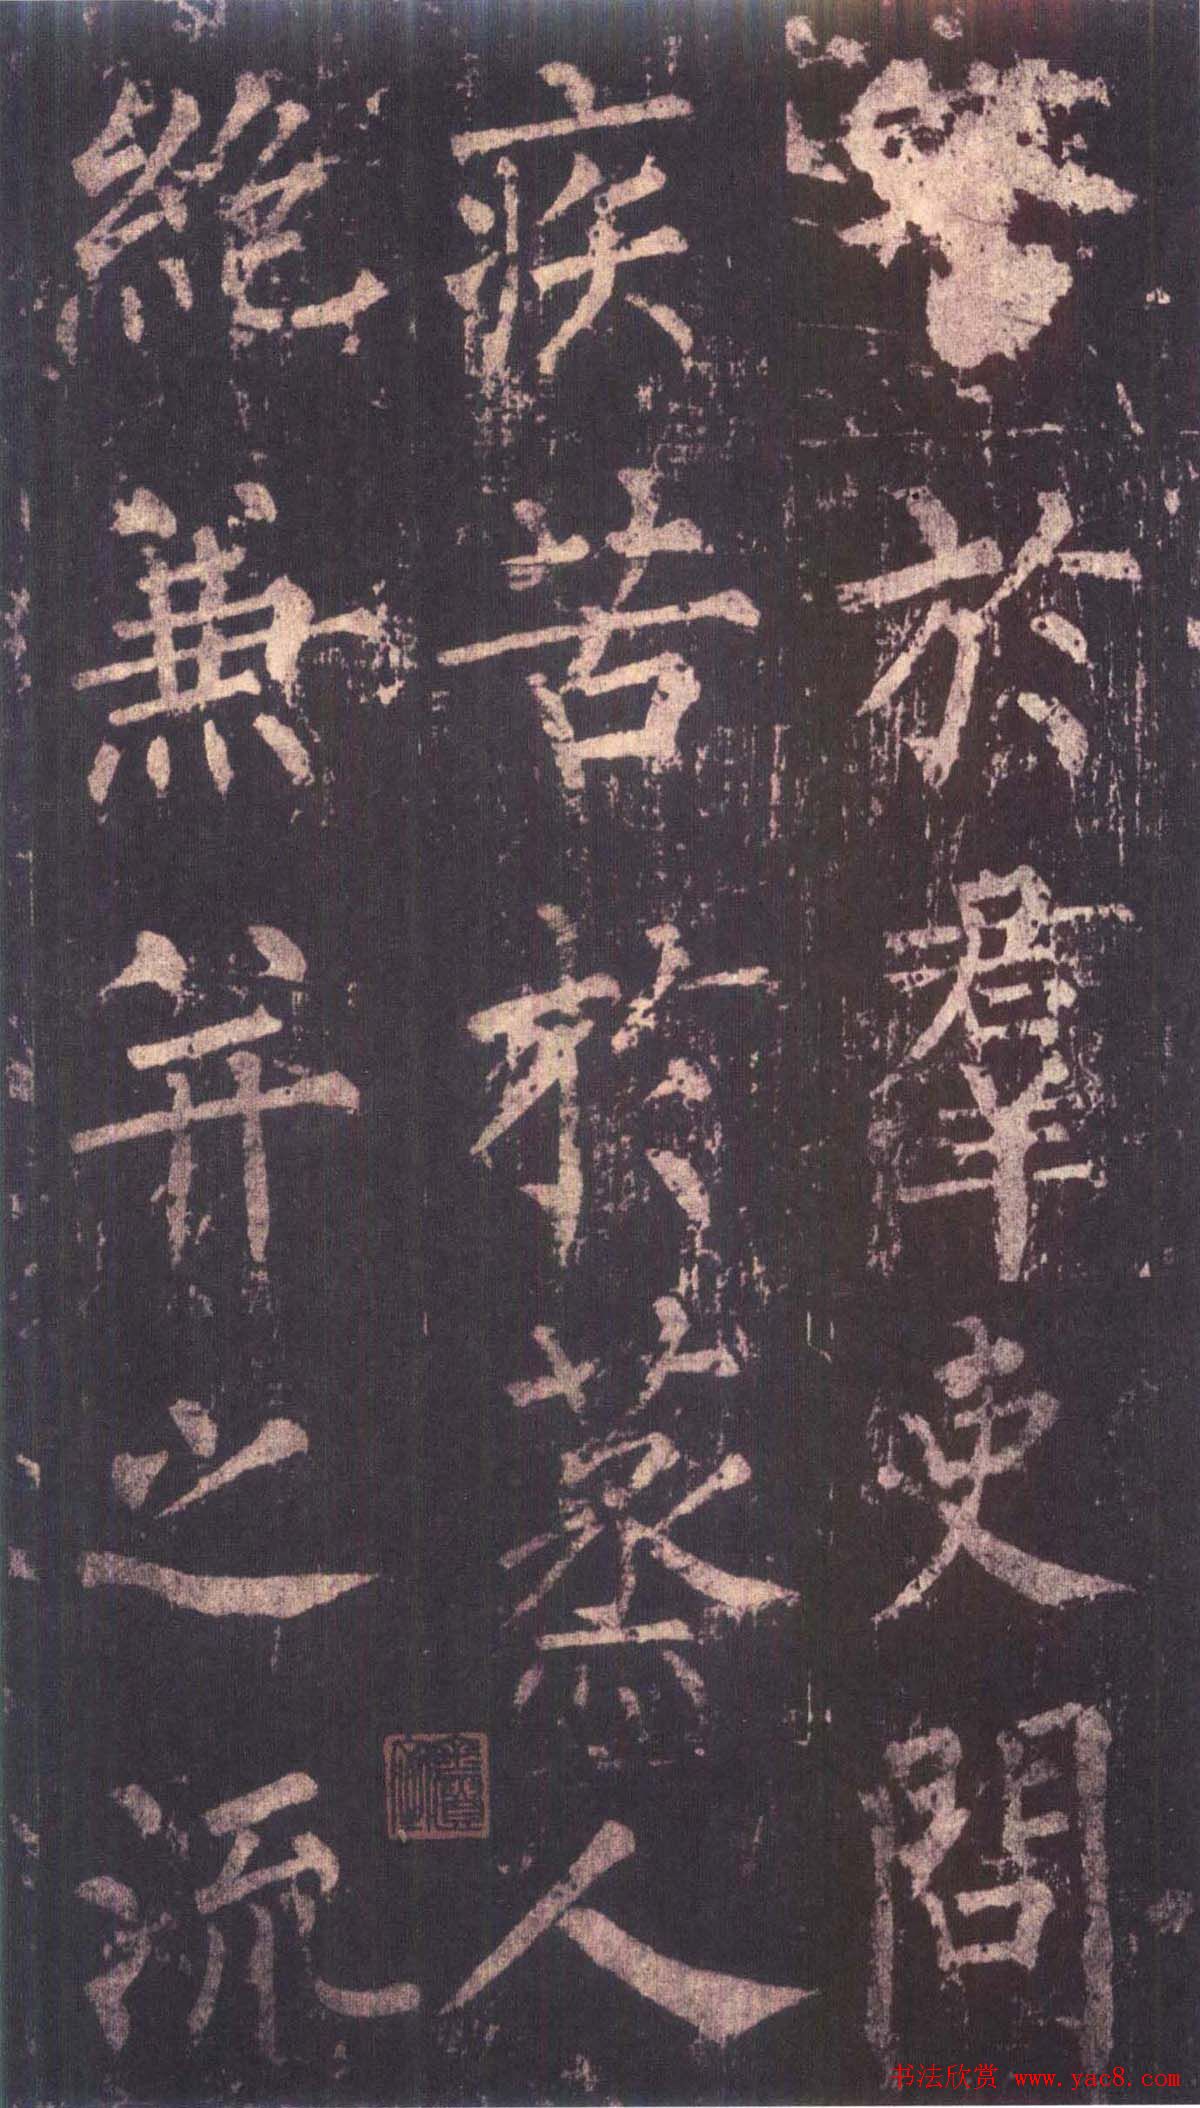 於羣吏問
疾苦於蒸人
絶兼并之流
书法欣赏 www.yac8.com